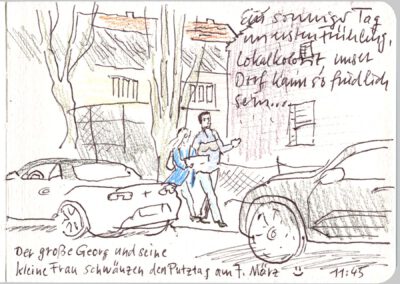 Ein sonniger Tag
im ersten Frühling,
Lokalkolorit unser
Dorf kann so friedlich
sein...
Der große Georg und seine
kleine Frau schwänzen den Putztag am 7. März
11:45